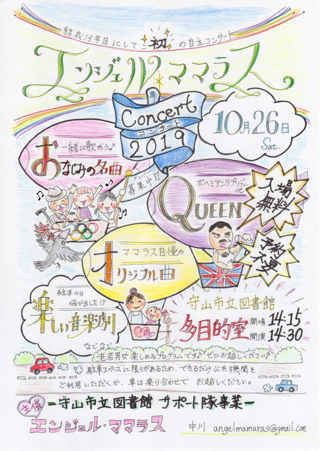 結成13年目にして初の自主コンサート
エンジェル・ママラス
Concert
コンサート
2019
10月26日
Sat.
一緒に歌おう♪
おなじみの名曲
募集中!!
ボヘミアンラプソディ他
QUEEN
入場無料
予約不要
ママラス自慢の
オリジナル曲
絵本から
飛び出した!?
楽しい音楽劇
などなど…
守山市立図書館
多目的室
開場 14:15
開演 14:30
老若男女楽しめるプログラムです♪ ぜひお越しください♪
駐車スペースに限りがあるため、できるだけ公共交通機関を
ご利用いただくか、車は乗り合わせでお越しください。
主催
ー守山市立図書館 サポート隊事業ー
エンジェル・ママラス
中川 angelmamaras@gmail.com